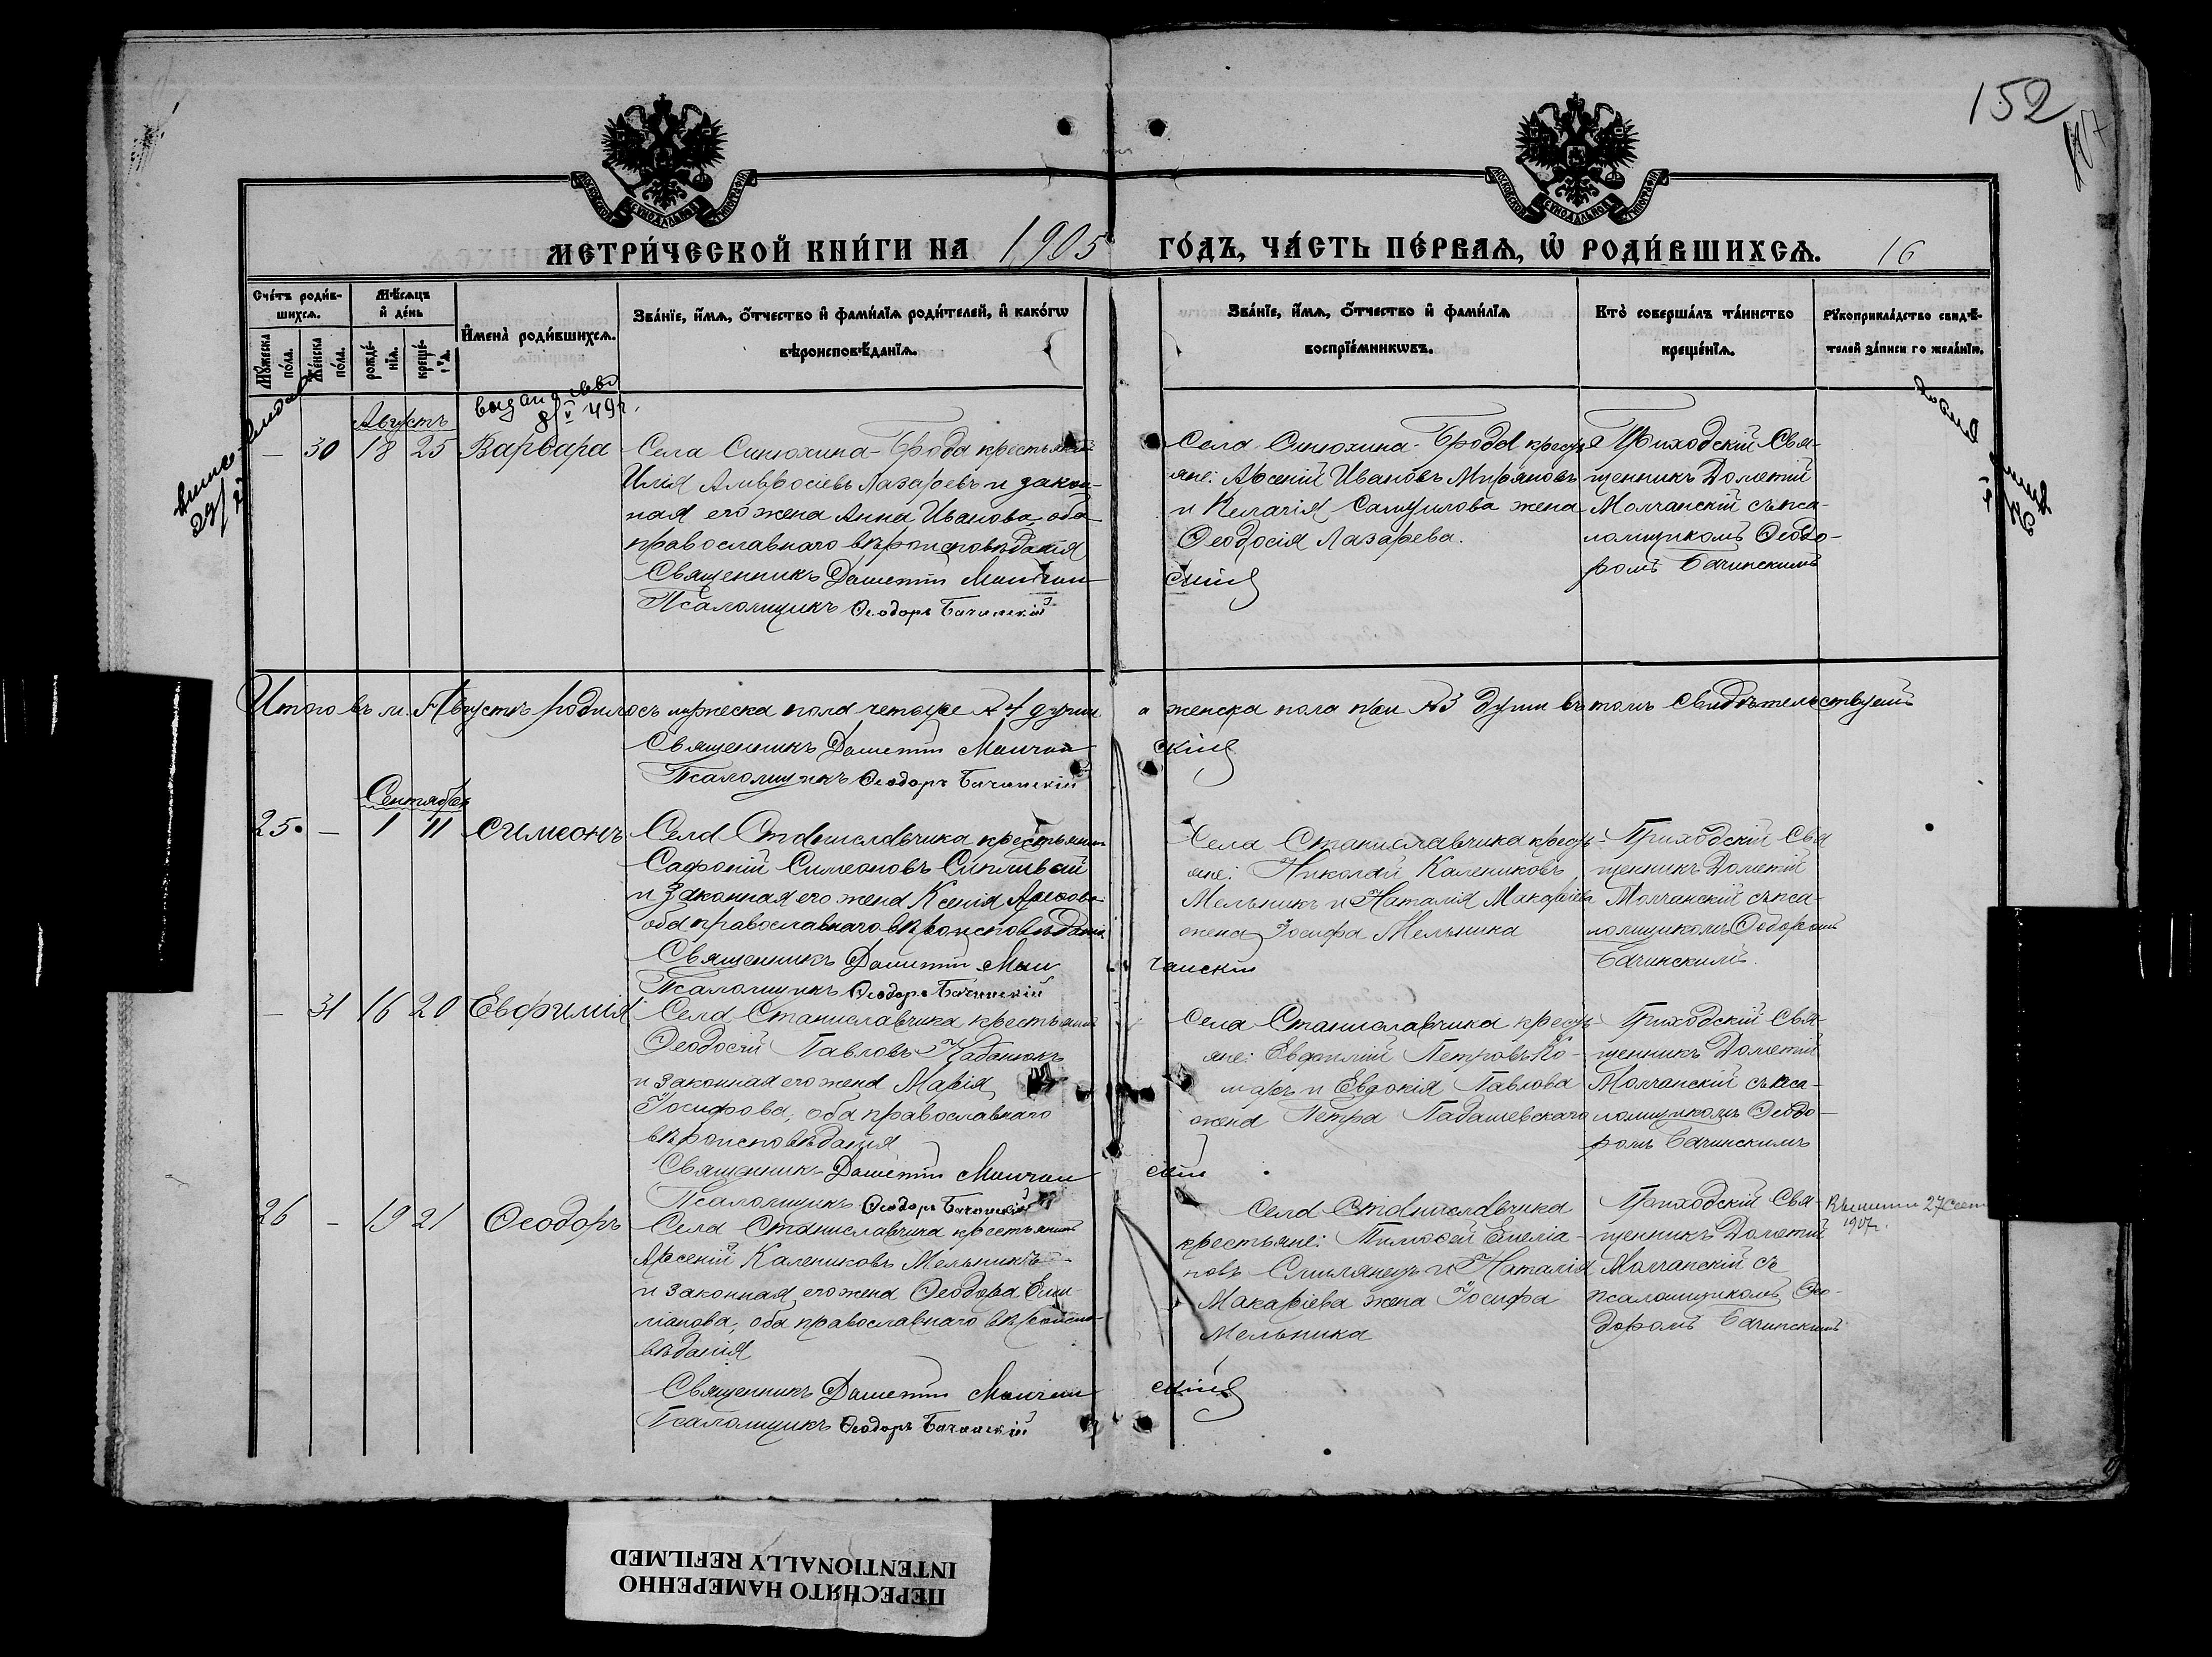 152
МЕТРИ́ЧЕСКОЙ КНИ́ГИ НА 1905 ГО́ДЪ, ЧА́СТЬ ПЕ́РВАѦ, Ѿ РОДИ́ВШИХСѦ. 16
Сче́тъ роди́в-
шихсѧ.
Мꙋ́жеска
по́ла.
Же́нска
по́ла.
Мѣ́сѧцъ
и҆ де́нь
рожде́-
нїѧ.
креще́-
нїѧ.
И҆мена̀ роди́вшихсѧ.
Зва́нїе, и҆́мѧ, ѻ҆́тчество и҆ фами́лїѧ роди́телей, и҆ како́гѡ
вѣроисповѣ́данїѧ.
Зва́нїе, и҆́мѧ, ѻ҆́тчество и҆ фами́лїѧ
воспрїе́мникѡвъ.
Кто̀ соверша́лъ та́инство
креще́нїѧ.
Рꙋкоприкла́дство свидѣ́-
телей за́писи по жела́нїю.
Августъ
— 30 18 25 Варвара
Села Синюхина-Брода крестьянинъ
Илія Амвросіевъ Лазаревъ и закон-
ная его жена Анна Иванова, оба
православнаго вѣроисповѣданія
Священникъ Дометій Молчан
Псаломщикъ Ѳеодоръ Бачинскій
Села Синюхина-Брода кресть
яне: Арсеній Ивановъ Мирановъ
и Пелагія Самуилова жена
Ѳеодосія Лазарева.
скій
Приходскій Свя-
щенникъ Дометій
Молчанскій съ пса-
ломщикомъ Ѳеодо-
ромъ Бачинскимъ
Итого въ м. Августѣ родилось мужеска пола четыре № 4 души а женска пола три № 3 души въ томъ свидѣтельствуемъ
Священникъ Дометій Молчан скій
Псаломщикъ Ѳеодоръ Бачинскій
Сентябрь
25. — 1 11 Симеонъ
Села Станиславчика крестьянинъ
Сафроній Симеоновъ Сипливый
и законная его жена Ксенія
оба православнаго вѣроисповѣданія
Священникъ Дометій Мол чанскій
Псаломщикъ Ѳеодоръ Бачинскій
Села Станиславчика кресть-
яне: Николай Калениковъ
Мельникъ и Наталія Макаріева
жена Іосифа Мельника
Приходскій Свя
щенникъ Дометій
Молчанскій съ пса-
ломщикомъ Ѳеодоромъ
Бачинскимъ.
— 31 16 20 Евфимія
Села Станиславчика крестьянинъ
Ѳеодосій Павловъ Кабанюкъ
и законная его жена Марія
Іосифова, оба православнаго
вѣроисповѣданія
Священникъ Дометій Молчан скій
Псаломщикъ Ѳеодоръ Бачинскій
Села Станиславчика кресть-
яне: Евфимій Петровъ Ко-
маръ и Евдокія Павлова
жена Петра Падашевскаго
Приходскій Свя-
щенникъ Дометій
Молчанскій съ пса-
ломщикомъ Ѳеодо-
ромъ Бачинскимъ
26 — 19 21 Ѳеодоръ
Села Станиславчика крестьянинъ
Арсеній Калениковъ Мельникъ
и законная его жена Ѳеодора Еми-
ліанова, оба православнаго вѣроиспо-
вѣданія
Священникъ Дометій Молчан скій
Псаломщикъ Ѳеодоръ Бачинскій
Села Станиславчика
крестьяне: Тимоѳей Емеліа-
новъ Смилянецъ и Наталія
Макаріева жена Іосифа
Мельника
Приходскій Свя-
щенникъ Дометій
Молчанскій съ
псаломщикомъ Ѳео-
доромъ Бачинскимъ
1907г.
ПЕРЕСНЯТО НАМЕРЕННО
INTENTIONALLY REFILMED